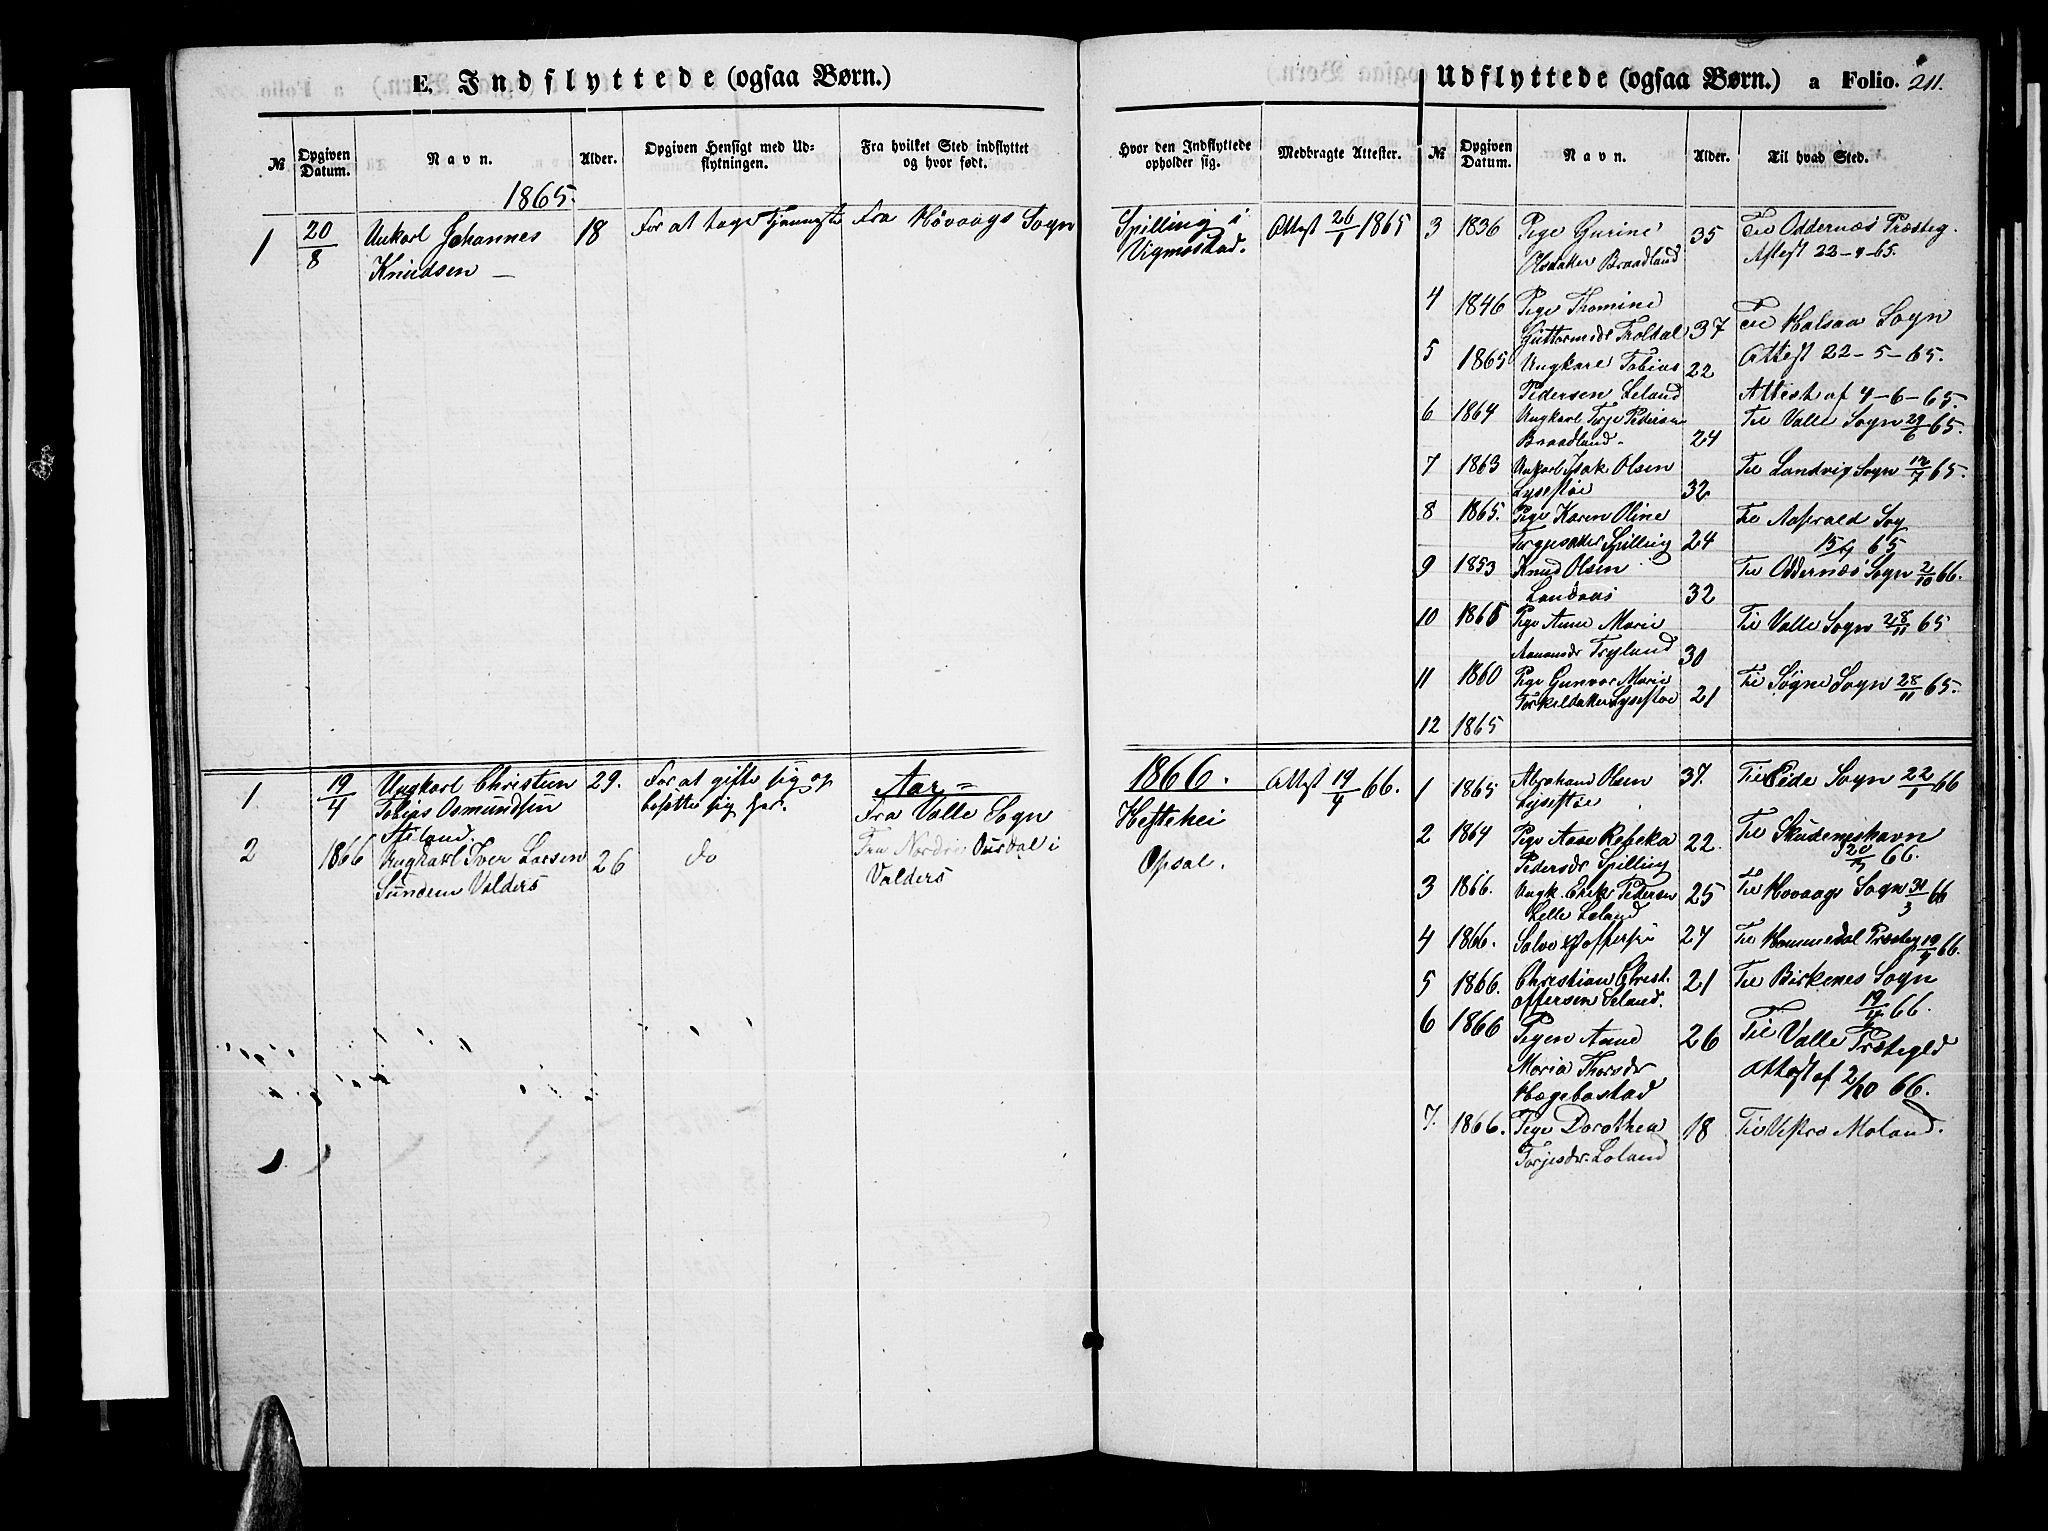 E. Indflyttede (ogsaa Børn.)
№
Opgiven Datum.
Navn.
Alder.
Opgiven Hensigt med Udflytningen.
Fra hvilket Sted indflyttet og hvor født.
1865.
1 20/8 Unkarl Johannes 18 For at tage Tjeneste Fra Høvaags Sogn
Knudsen —
1 19/4 Ungkarl Christen 29. For at gifte sig og Aar =
Tobias Osmundsen besætte sig her. Fra Valle Sogn
2 1866 Ungkarl Iver Larsen 26 do Fra Nordre Ourdal i
Valders Valders
Udflyttede (ogsaa Børn.) a Folio. 211.
Hvor den Indflyttede opholder sig.
Medbragte Attester.
№
Opgiven Datum.
Navn.
Alder.
Til hvad Sted.
Spilling i Attest 26/1 1865
Vigmostad.
1866. Attest 19/4 66.
Heftehei
Opsal.
3 1836 Pige Gurine 35 Til Oddernæs Præsteg.
Braadland Attest 22-9-65.
4 1846 Pige Thomine Til Halsaa Sogn
Guttormsdr Troldal 37
5 1865 Ungkarl Tobias 22 Attest 22-5-65.
Pedersen Leland Attest af 4-6-65.
6 1864 Ungkarl Torje Pedersen Til Valle Sogn 29/6 65.
Braadland 24
7 1863 Unkarl Isak Olsen Til Landvig Sogn 12/7 65.
Lysestøe 32
8 1865. Pige Karen Oline Til Aaserald Sog
Spilling 24 65
9 1853 Knud Olsen Til Oddernæs Sogn 2/10 66.
Landaas 32
10 1865 Pige Anne Marie Til Valle Sogn 28/11 65
Aanonsdr Tryland 30
11 1860 Pige Gunvor Marie Til Søgne Sogn 28/11 65.
Lysestøe 21
12 1865
1 1865 Abraham Olsen 37. Til Eide Sogn 22/1 66
Lysestøe
2 1864 Pige Aase Rebeka 22. Til Skudeneshavn
Pedersdr Spilling 66.
3 1866. Ungk. Erik Pedersen 25 Til Hovaags Sogn 31/3 66
Lille Leland
4 1866. Salve 27 Til Hommedal Præsteg 19/4 66.
5 1866. Christian Christ- 21 Til Birkenes Sogn
offersen 19/4 66.
6 1866 Pigen Anne 26 Til Valle Præstegld
Maria Thorsdr Attest af 2/10 66.
Hægebostad
7. 1866. Pige Dorothea 18 Til Vestre Moland.
Torjesdr. Leland